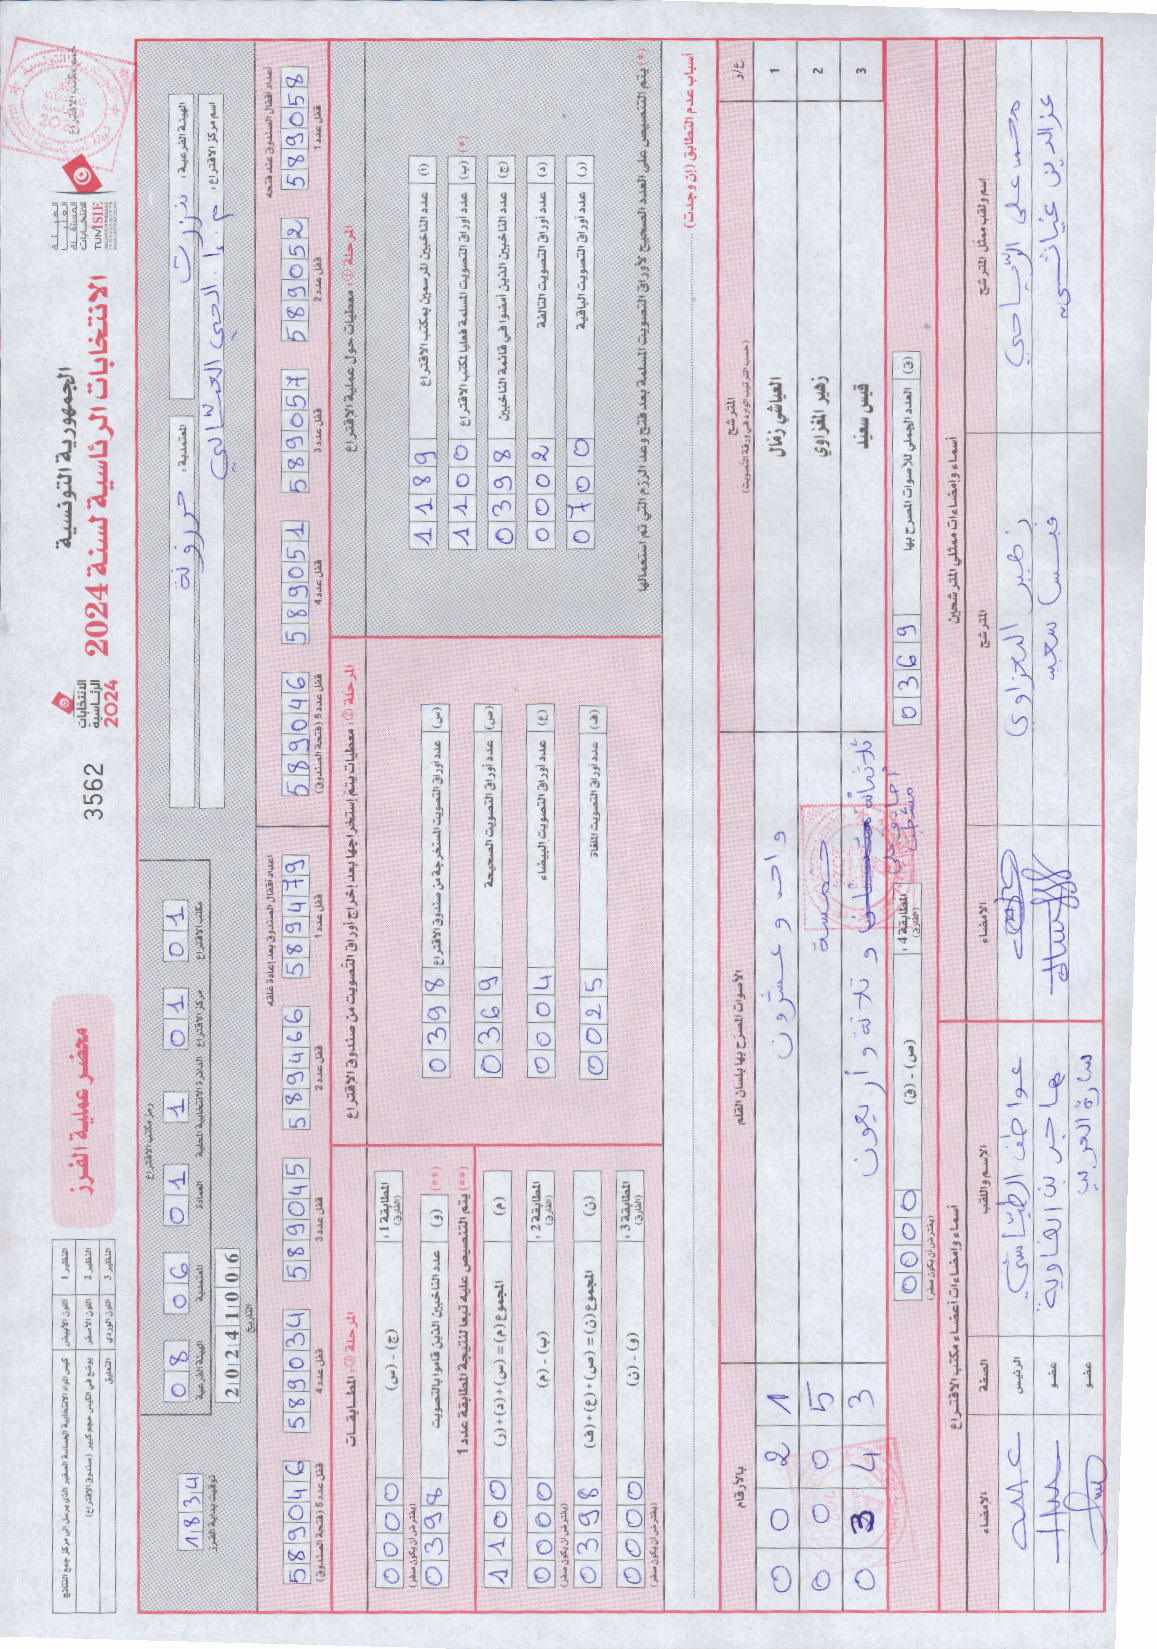 الجمهورية التونسية
الانتخابات الرئاسية لسنة 2024
الهيئة
العليا
المستقلة
للانتخابات
TUNISIE
الانتخابات
الرئاسية
2024
3562
محضر عملية الفرز
النظير 1 اللون الأبيض
النظير 2 اللون الأصفر
النظير 3 اللون الوردي التعليق
الهيئة الفرعية: بنزرت
المعتمدية: جرزونة
اسم مركز الاقتراع:
رمز مكتب الاقتراع
الهيئة الفرعية 08
المعتمدية 06
العمادة 01
الدائرة الانتخابية المحلية 1
مركز الاقتراع 01
مكتب الاقتراع 01
التاريخ 20241006
توقيت بداية الفرز 1834
أعداد أقفال الصندوق عند فتحه
قفل عدد 1 589058
قفل عدد 2 589052
قفل عدد 3 589057
قفل عدد 4 589051
قفل عدد 5 (فتحة الصندوق) 589046
أعداد أقفال الصندوق بعد إعادة غلقه
قفل عدد 1 589479
قفل عدد 2 589466
قفل عدد 3 589045
قفل عدد 4 589034
قفل عدد 5 (فتحة الصندوق) 589046
المرحلة (1): معطيات حول عملية الاقتراع
(أ) عدد الناخبين المرسمين بمكتب الاقتراع 1189
(ب) عدد أوراق التصويت المسلمة فعليا لمكتب الاقتراع (*) 1100
(ج) عدد الناخبين الذين أمضوا في قائمة الناخبين 0398
(د) عدد أوراق التصويت التالفة 0002
(ر) عدد أوراق التصويت الباقية 0700
(*) يتم التنصيص على العدد الصحيح لأوراق التصويت المسلمة بعد فتح وعد الرزم التي تم استعمالها
المرحلة (2): معطيات يتم إستخراجها بعد إخراج أوراق التصويت من صندوق الاقتراع
(س) عدد أوراق التصويت المستخرجة من صندوق الاقتراع 0398
(ص) عدد أوراق التصويت الصحيحة 0369
(ع) عدد أوراق التصويت البيضاء 0004
(ف) عدد أوراق التصويت الملغاة 0025
المرحلة (3): المطابقات
المطابقة 1: (الفارق) (ج) - (س) 0000 (يفترض أن يكون صفر)
(**) (و) عدد الناخبين الذين قاموا بالتصويت 0398
(**) يتم التنصيص عليه تبعا لنتيجة المطابقة عدد 1
(م) المجموع (م) = (س) + (د) + (ر) 1100
المطابقة 2: (الفارق) (ب) - (م) 0000 (يفترض أن يكون صفر)
(ن) المجموع (ن) = (ص) + (ع) + (ف) 0398
المطابقة 3: (الفارق) (و) - (ن) 0000 (يفترض أن يكون صفر)
أسباب عدم التطابق (إن وجدت)
ع/د المترشح (حسب الترتيب الوارد في ورقة التصويت) الأصوات المصرح بها بلسان القلم بالأرقام
1 العياشي زمال واحد و عشرون 0021
2 زهير المغزاوي خمسة 0005
3 قيس سعيد ثلاثمائة و ثلاثة وأربعون 0343
(ق) العدد الجملي للأصوات المصرح بها 0369
المطابقة 4: (الفارق) (ص) - (ق) 0000 (يفترض أن يكون صفر)
أسماء وإمضاءات ممثلي المترشحين
اسم ولقب ممثل المترشح المترشح الامضاء
محمد علي الرياحي زهير المغزاوي
عز الدين قيس سعيد
أسماء وإمضاءات أعضاء مكتب الاقتراع
الاسم واللقب الصفة الامضاء
عواطف الرئيس
هاجر بن عضو
سارة العربي عضو